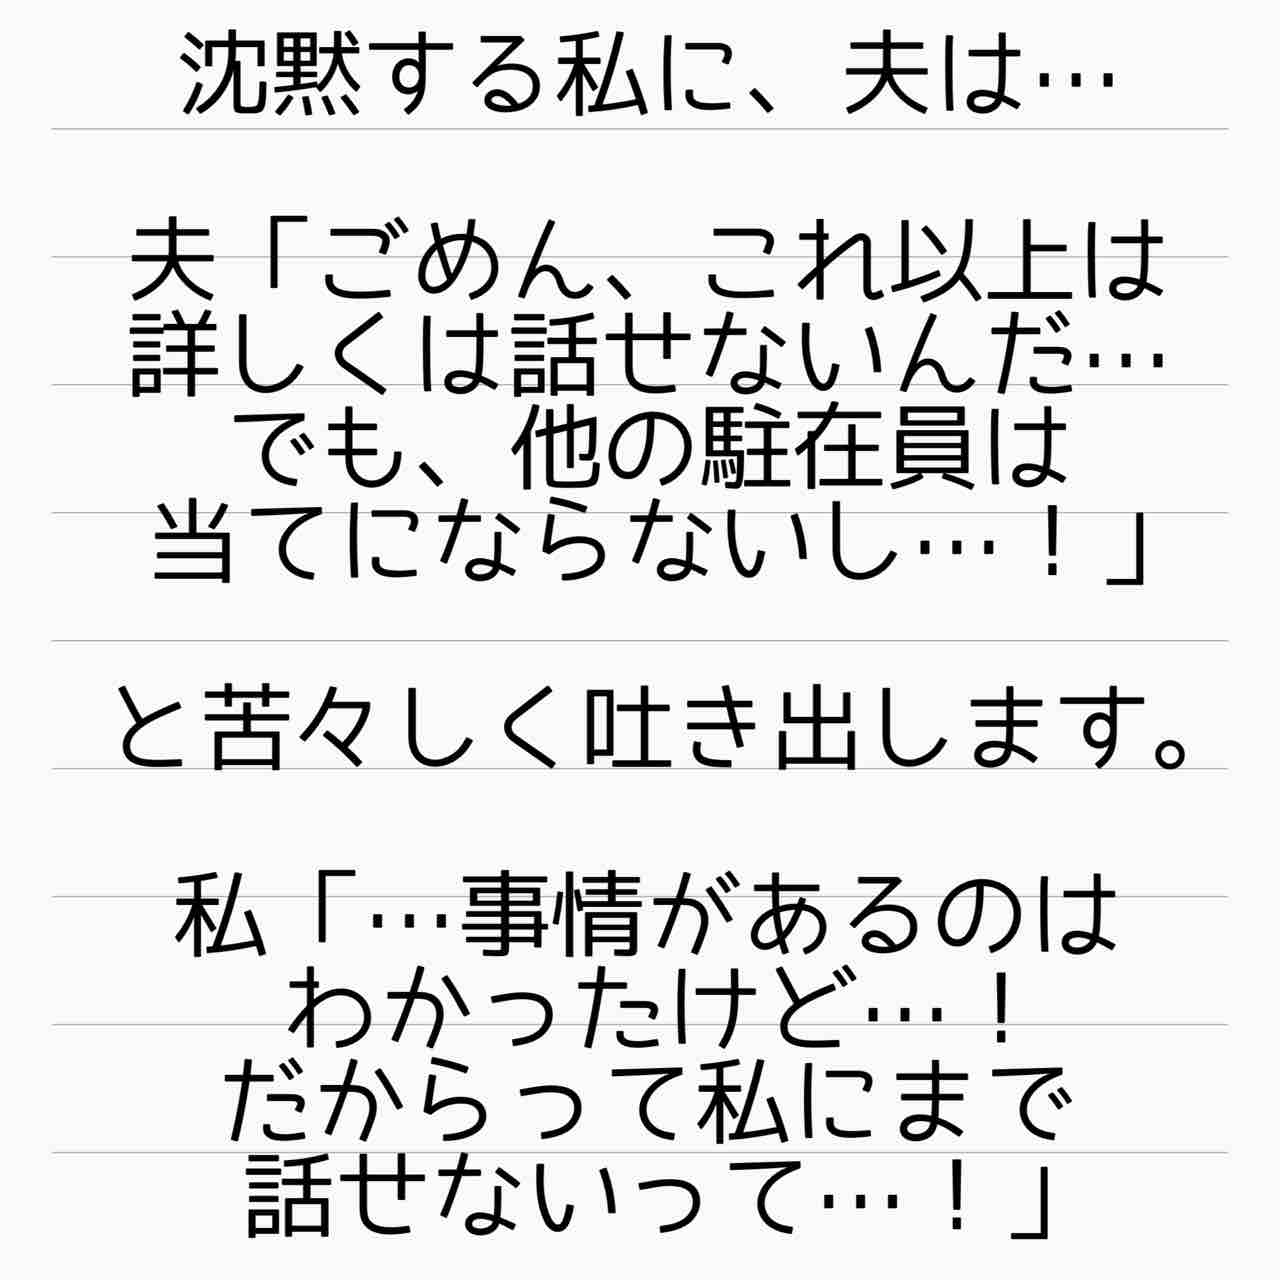 沈黙する私に、夫は…
夫「ごめん、これ以上は
詳しくは話せないんだ…
でも、他の駐在員は
当てにならないし…！」
と苦々しく吐き出します。
私「…事情があるのは
わかったけど…！
だからって私にまで
話せないって…！」